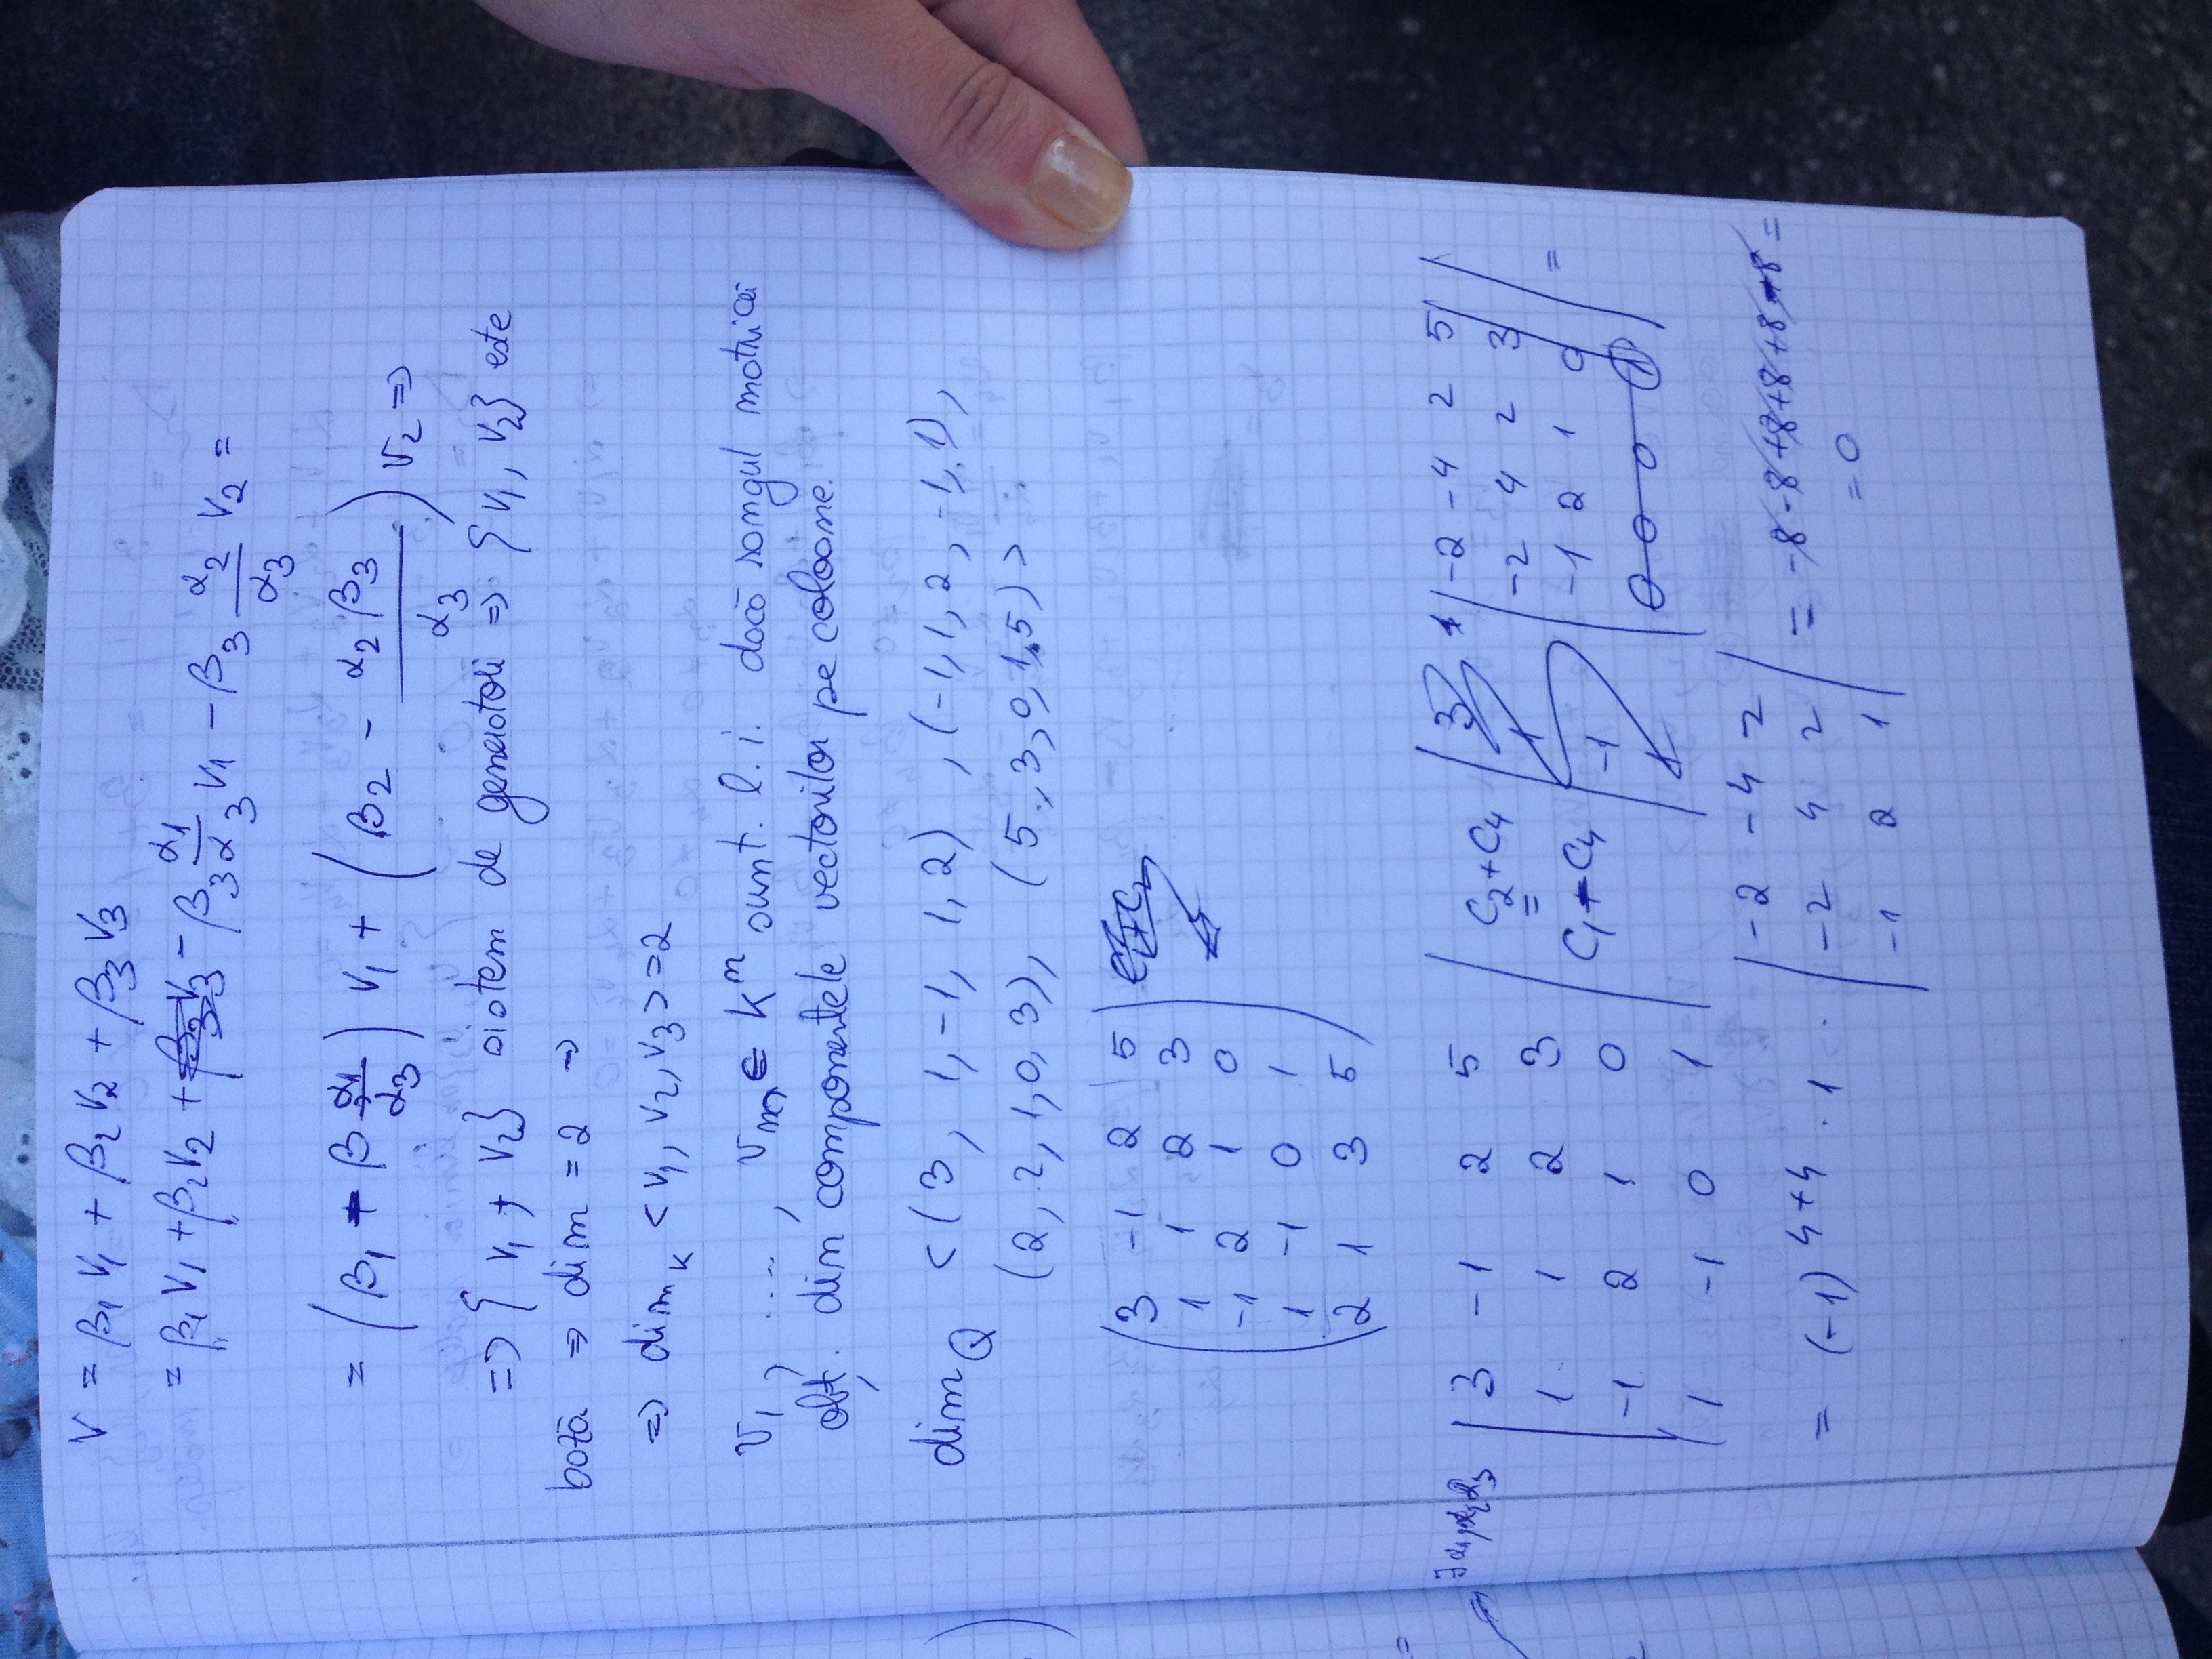 V = β₁ V₁ + β₂ V₂ + β₃ V₃
= β₁ V₁ + β₂ V₂ + β₃ V₃ - β₃ α₁/α₃ V₁ - β₃ α₂/α₃ V₂ =
= (β₁ - β α₁/α₃) V₁ + (β₂ - α₂ β₃/α₃) V₂ ⇒
⇒ { V₁, V₂} sistem de generatori ⇒ {V₁, V₂} este
bază ⇒ dim = 2 ⇒
⇒ dim_K < V₁, V₂, V₃ > = 2
V₁, ...., Vₘ ∈ Kⁿ sunt. l. i. dacă rangul matricei
obț. din componentele vectorilor pe coloane.
dim_Q < (3, 1, -1, 1, 2), (-1, 1, 2, -1, 1),
(2, 2, 1, 0, 3), (5, 3, 0, 1, 5) >
3 -1 2 5
1 1 2 3
-1 2 1 0
1 -1 0 1
2 1 3 5
3 -1 2 5 | C₂ + C₄ | 3 | -2 -4 2 5
1 1 2 3 | = | 1 | -2 4 2 3
-1 2 1 0 | C₁ - C₄ | -1 | -1 2 1 0 | =
1 -1 0 1 | 1 | 0 0 0 1
= (-1)⁴⁺⁴ · 1 · | -2 -4 2 | = -8 -8 +8 +8 +8 -8 =
| -2 4 2 | = 0
| -1 2 1 |